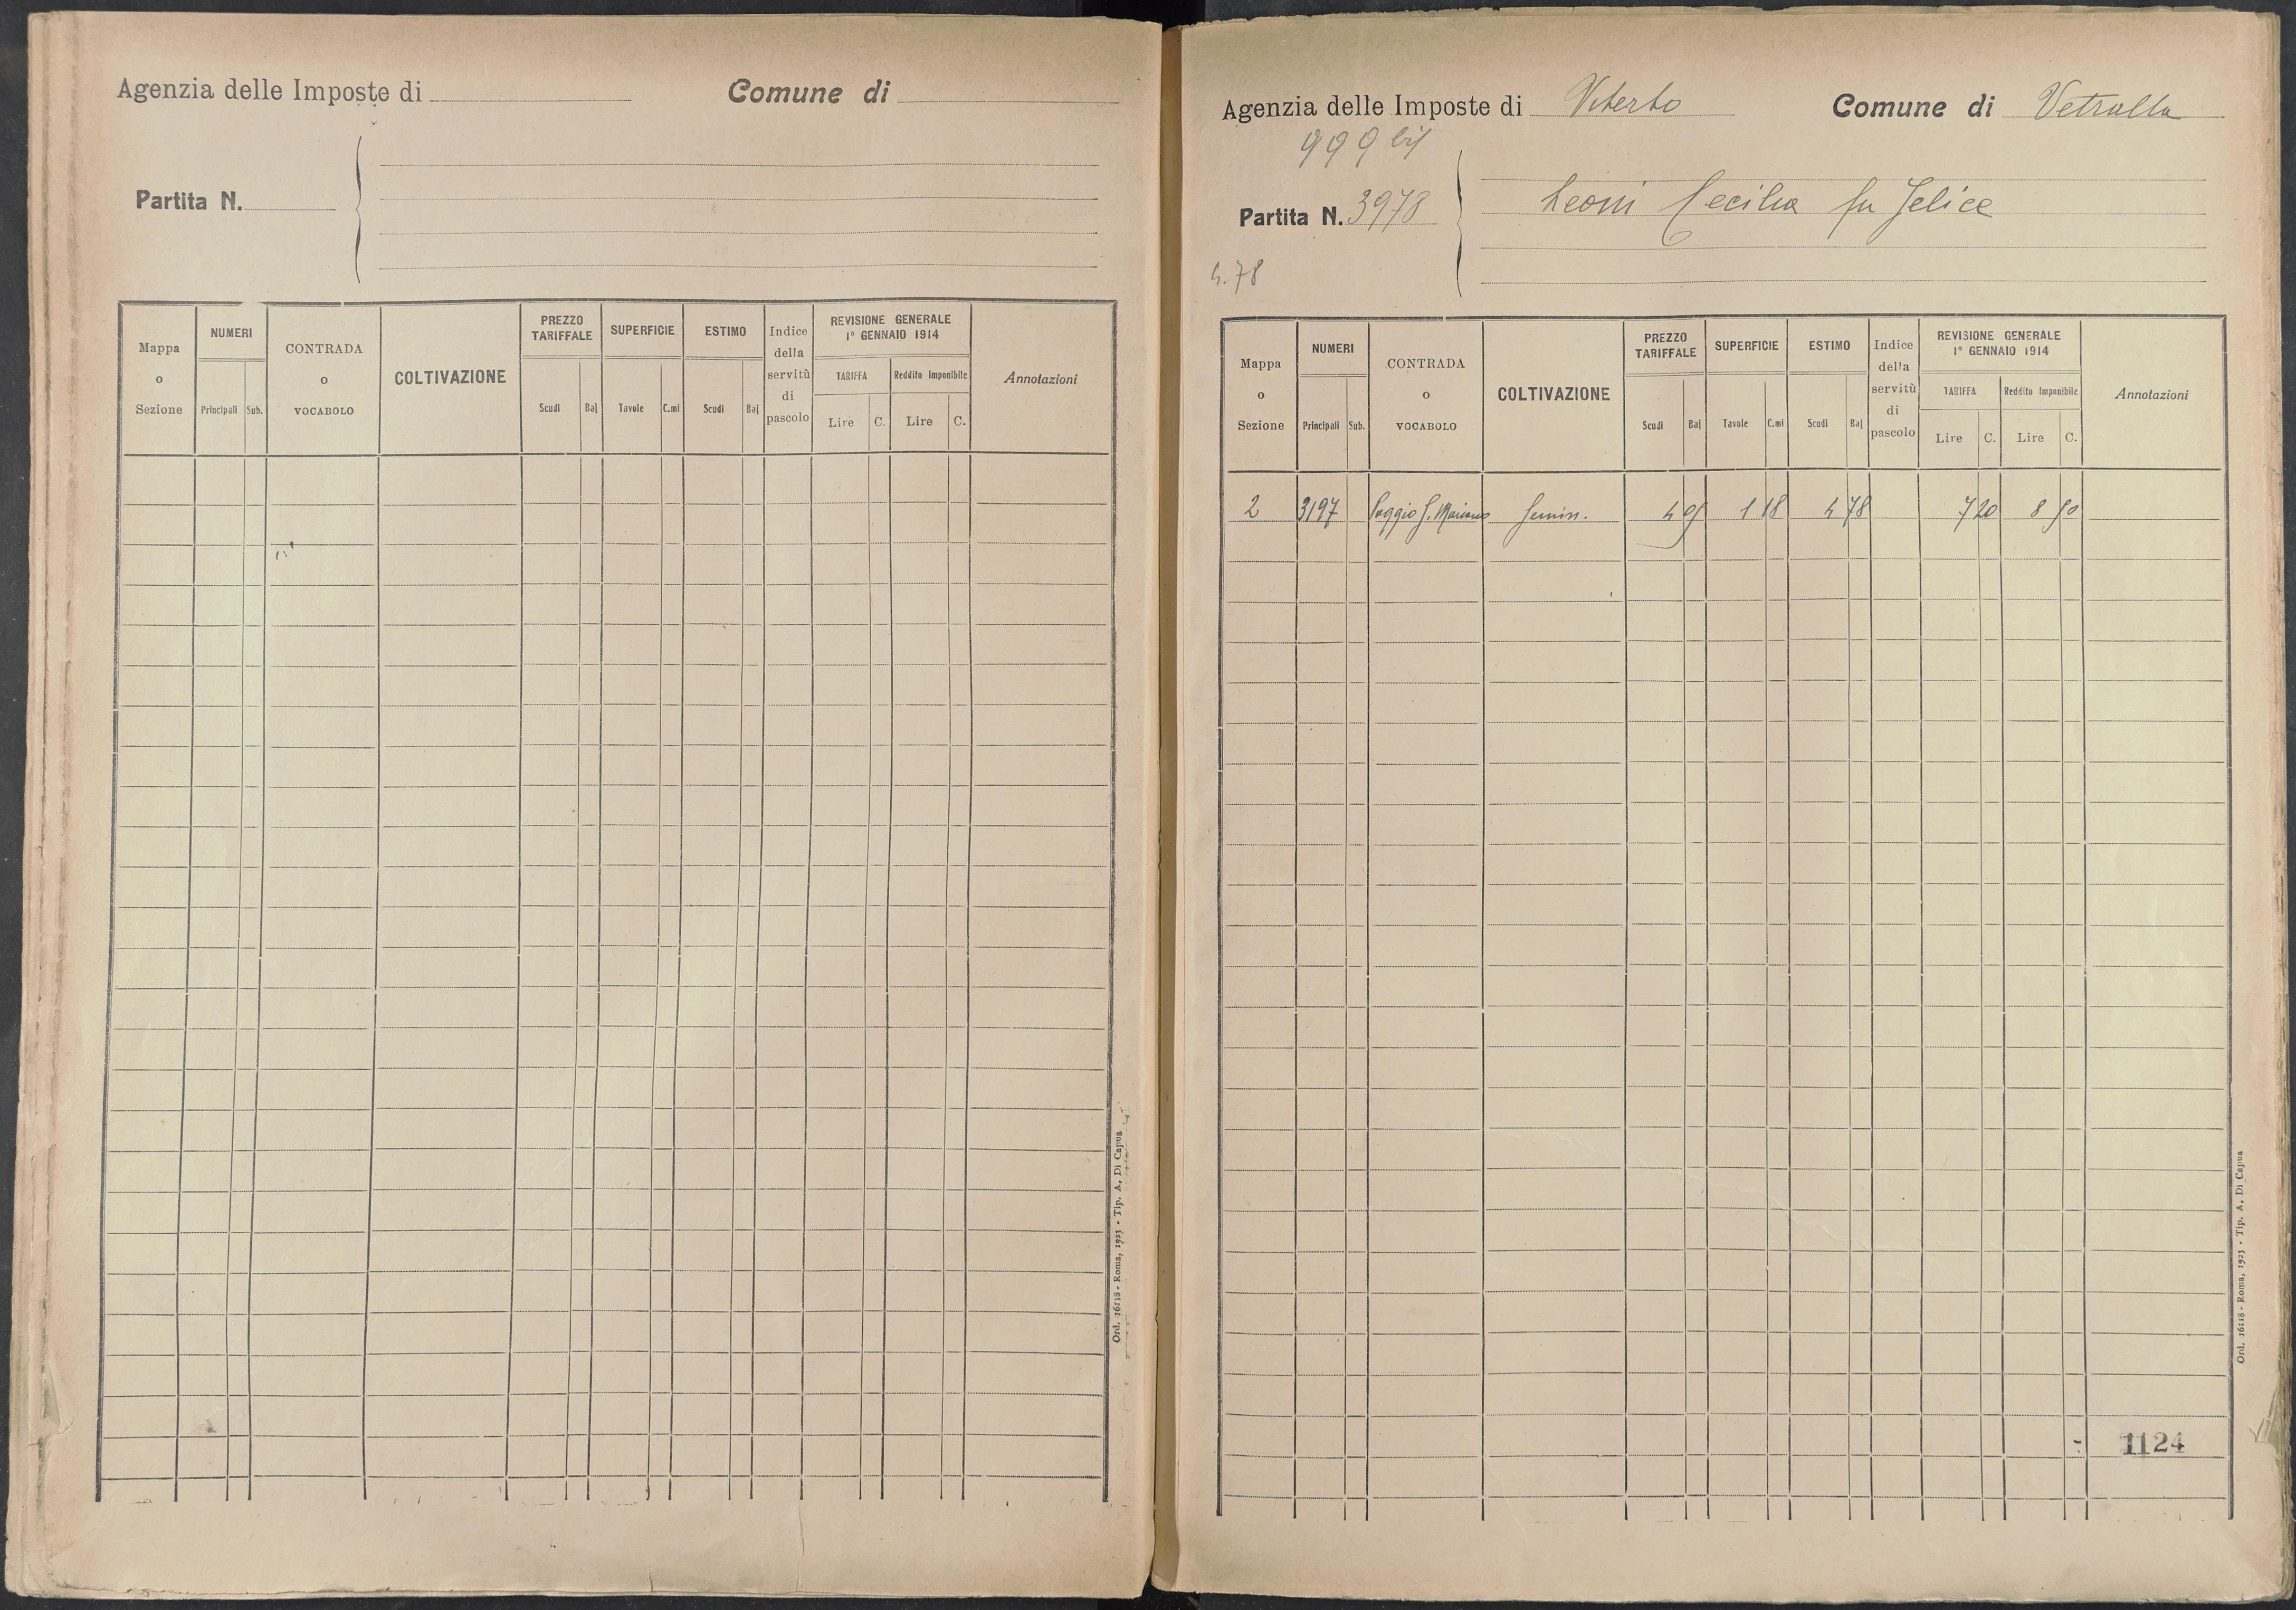 Agenzia delle Imposte di
Comune di
Partita N.
Mappa o Sezione
NUMERI
Principali Sub.
CONTRADA o VOCABOLO
COLTIVAZIONE
PREZZO TARIFFALE
Scudi Baj
SUPERFICIE
Tavole C.mi
ESTIMO
Scudi Baj
Indice della servitù di pascolo
REVISIONE GENERALE
1° GENNAIO 1914
TARIFFA
Lire C.
Reddito Imponibile
Lire C.
Annotazioni
Ord. 16118 - Roma, 1923 - Tip. A. Di Capua
Agenzia delle Imposte di Viterbo
Comune di Vetralla
999 bis
Partita N. 3978
Leoni Cecilia fu Felice
4.78
Mappa o Sezione
NUMERI
Principali Sub.
CONTRADA o VOCABOLO
COLTIVAZIONE
PREZZO TARIFFALE
Scudi Baj
SUPERFICIE
Tavole C.mi
ESTIMO
Scudi Baj
Indice della servitù di pascolo
REVISIONE GENERALE
1° GENNAIO 1914
TARIFFA
Lire C.
Reddito Imponibile
Lire C.
Annotazioni
2 3197 Poggio S. Mariano Semin. 4 05 1 18 4 78 7 20 8 50
1124
Ord. 16118 - Roma, 1923 - Tip. A. Di Capua